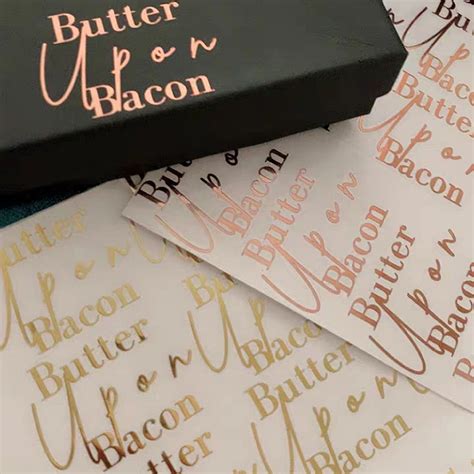 Butter
Upon
Bacon
Butter
Upon
Bacon
Butter
Upon
Bacon
Butter
Upon
Bacon
Butter
Upon
Bacon
Butter
Upon
Bacon
Butter
Upon
Bacon
Butter
Bacon